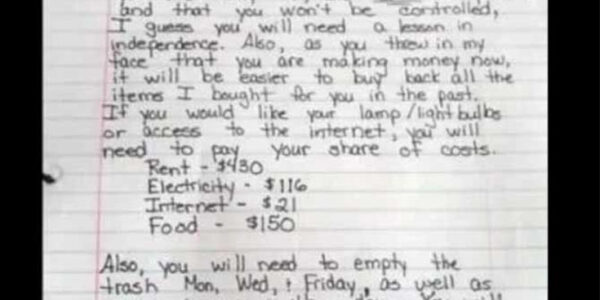 and that you won't be controlled,
I guess you will need a lesson in
independence. Also, as you threw in my
face that you are making money now,
it will be easier to buy back all the
items I bought for you in the past.
If you would like your lamp/lightbulbs
or access to the internet, you will
need to pay your share of costs.
Rent - $430
Electricity - $116
Internet - $21
Food - $150
Also, you will need to empty the
trash Mon, Wed, + Friday, as well as